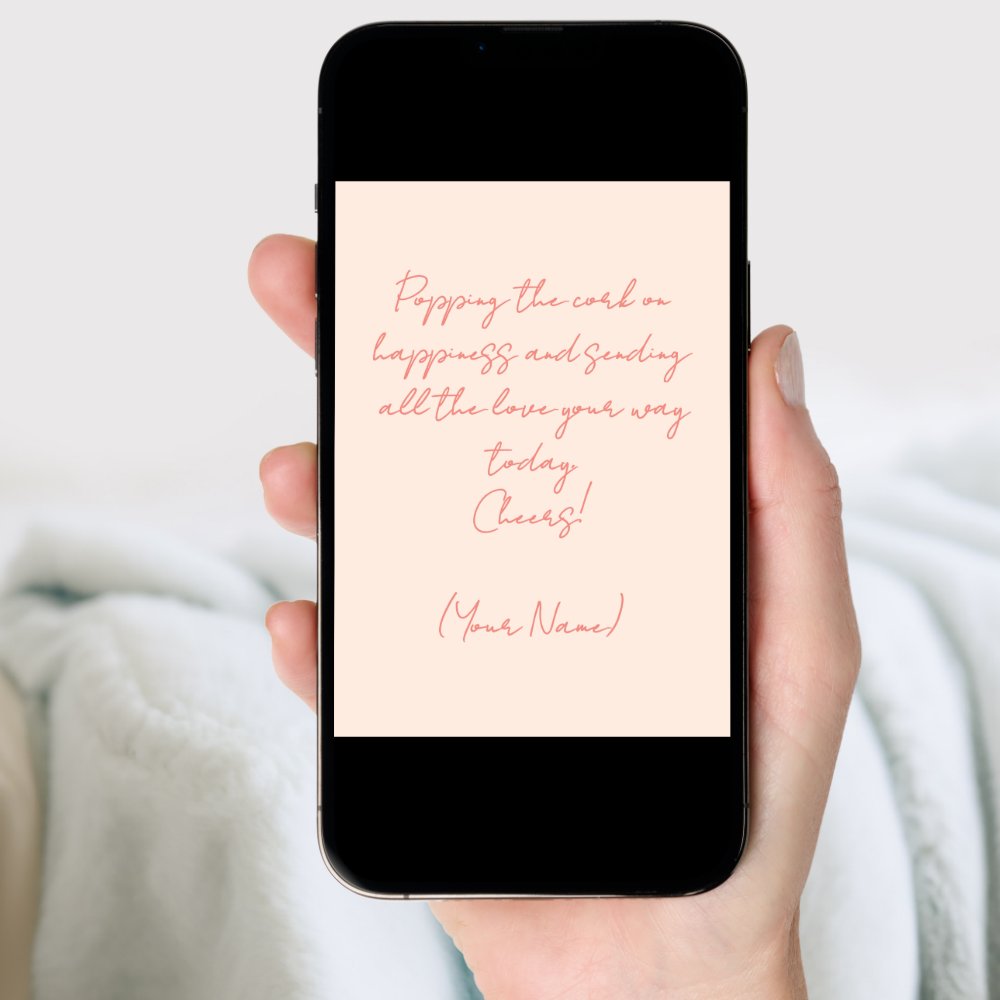 Popping the cork on
happiness and sending
all the love your way
today.
Cheers!
(Your Name)